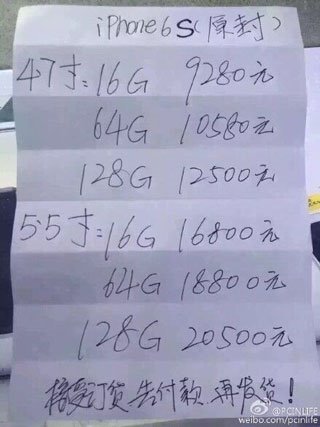 iPhone 6S(原封)
47寸:16G 9280元
64G 10580元
128G 12500元
55寸:16G 16800元
64G 18800元
128G 20500元
接受订货 先付款 再发货!
@PCINLIFE
weibo.com/pcinlife